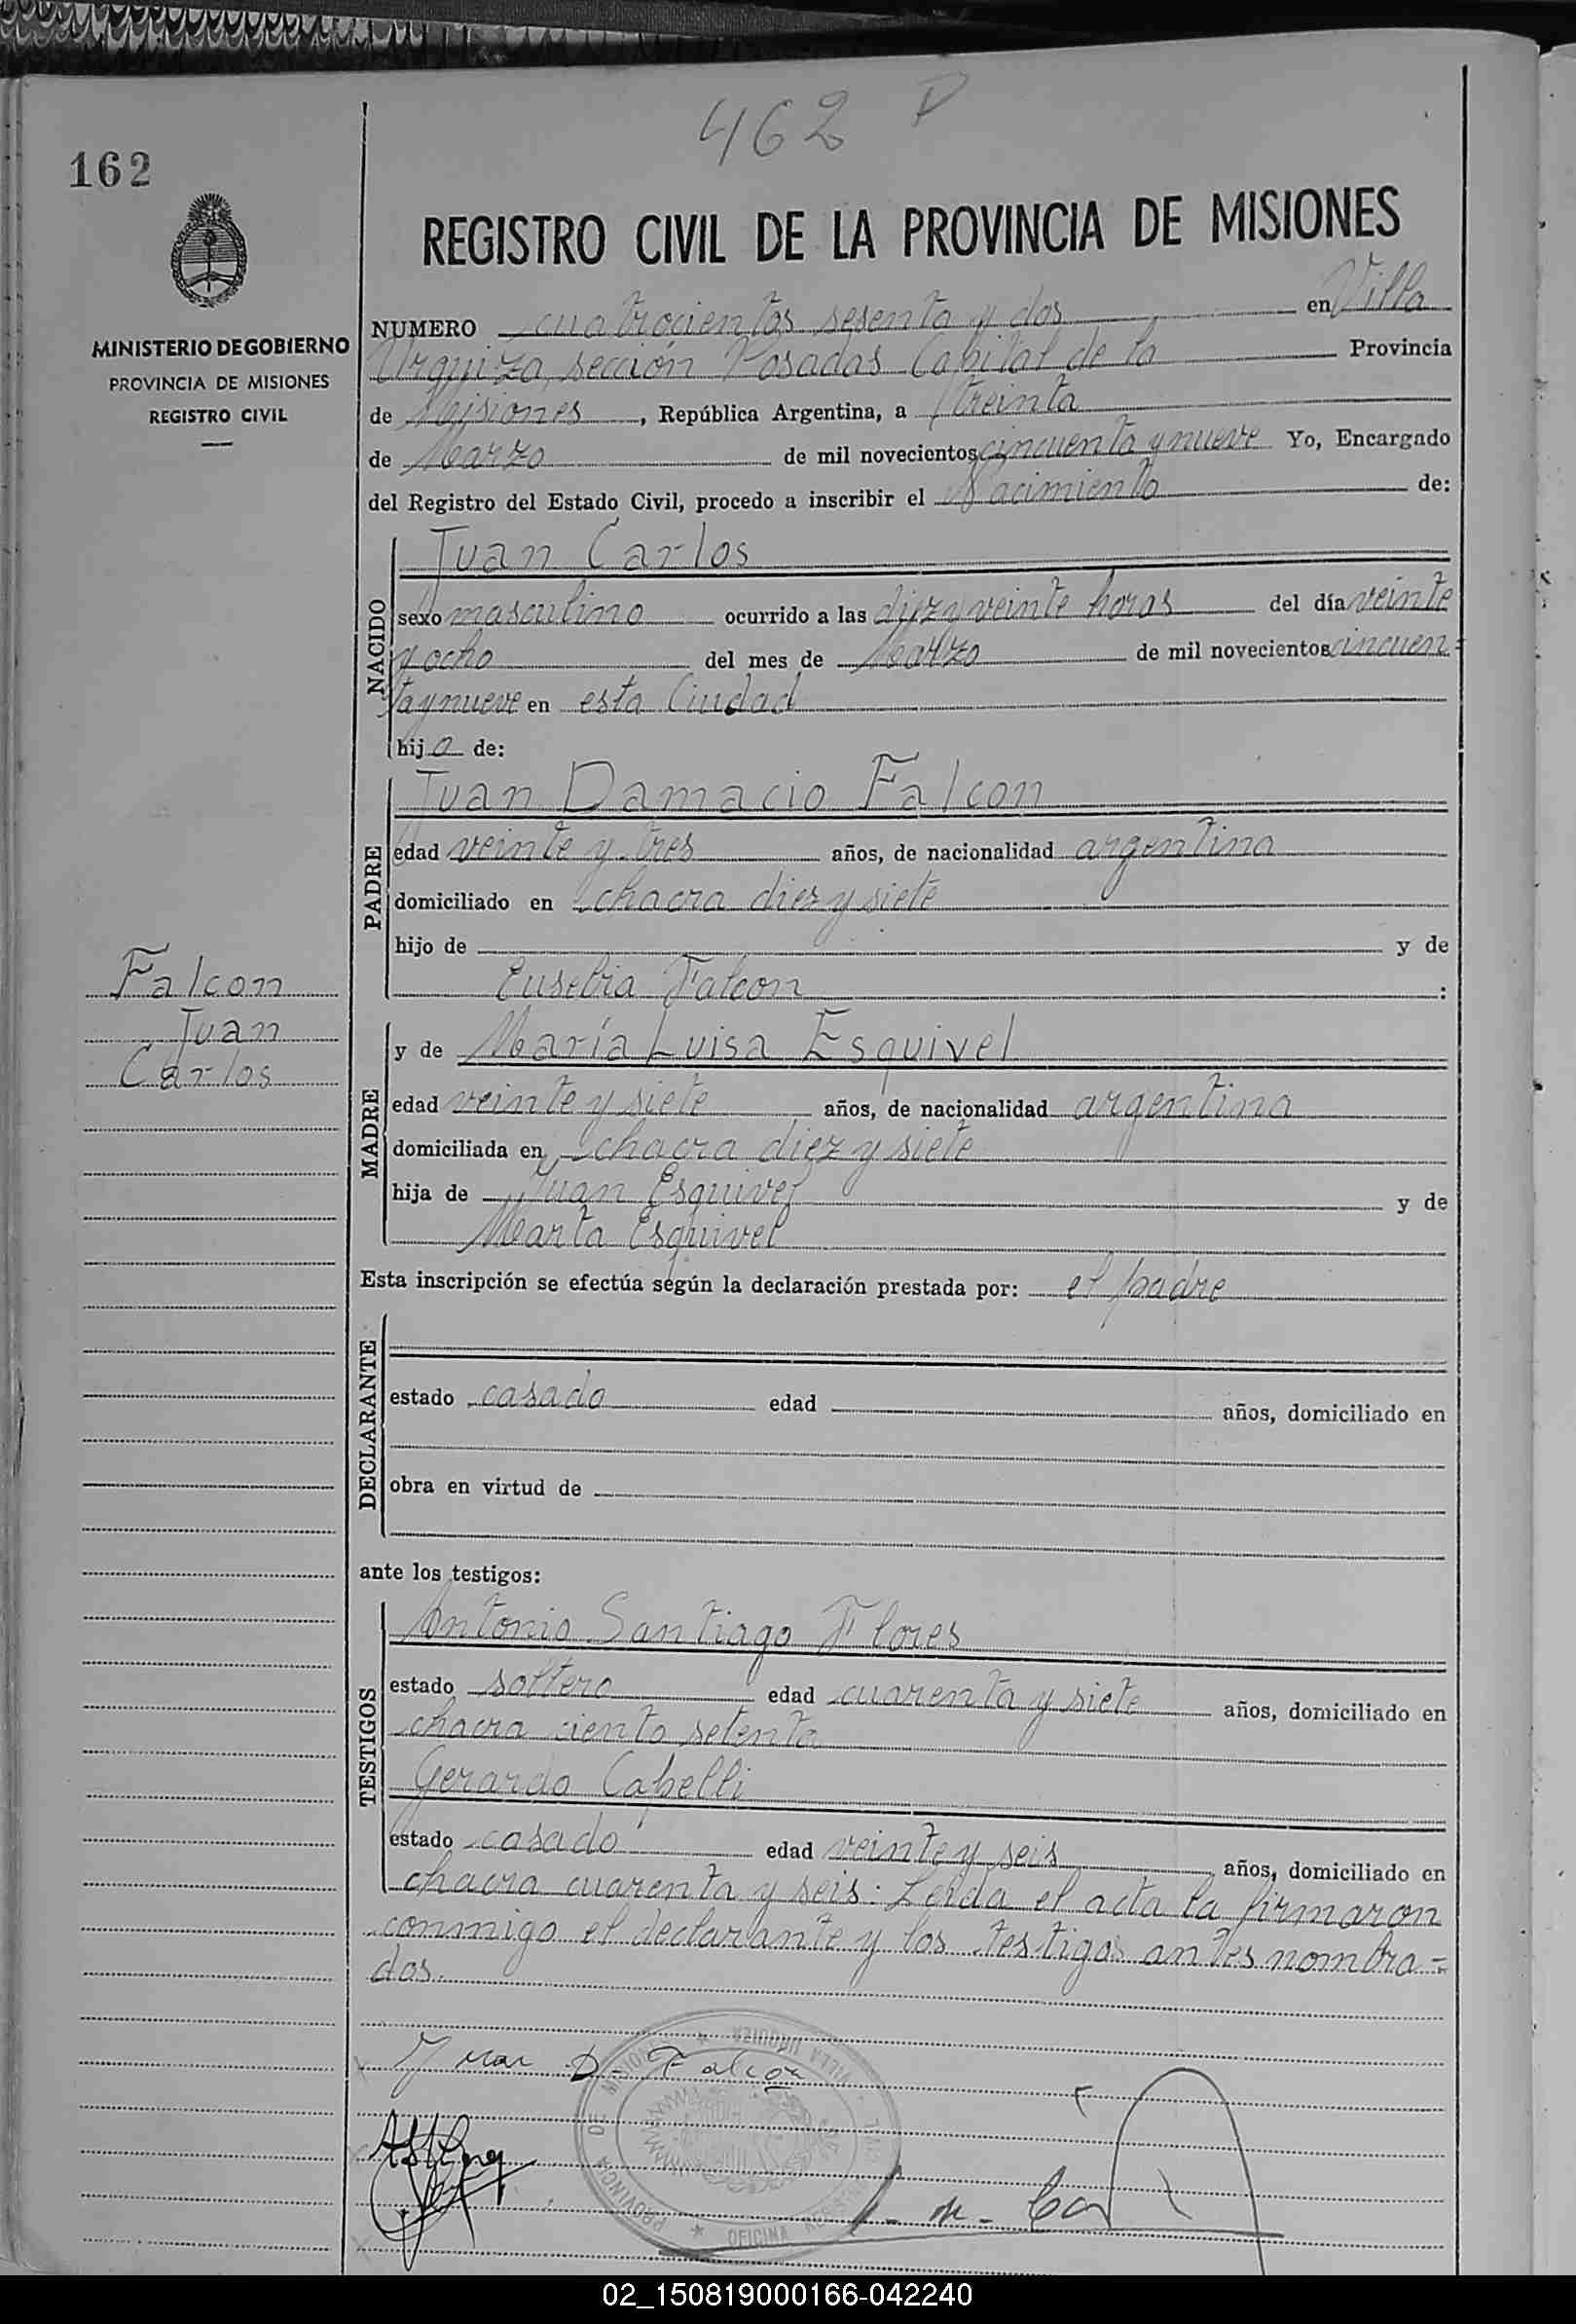 462 D
162
REGISTRO CIVIL DE LA PROVINCIA DE MISIONES
MINISTERIO DE GOBIERNO
PROVINCIA DE MISIONES
REGISTRO CIVIL
NUMERO cuatrocientos sesenta y dos en Villa
Urquiza, sección Posadas Capital de la Provincia
de Misiones, República Argentina, a treinta
de Marzo de mil novecientos cincuenta y nueve Yo, Encargado
del Registro del Estado Civil, procedo a inscribir el Nacimiento de:
NACIDO
Juan Carlos
sexo masculino ocurrido a las diez y veinte horas del día veinte
y ocho del mes de Marzo de mil novecientos cincuen-
ta y nueve en esta Ciudad
hijo de:
PADRE
Juan Damacio Falcon
edad veinte y tres años, de nacionalidad argentina
domiciliado en chacra diez y siete
hijo de y de
Eusebia Falcon :
Falcon
Juan
Carlos
MADRE
y de María Luisa Esquivel
edad veinte y siete años, de nacionalidad argentina
domiciliada en chacra diez y siete
hija de Juan Esquivel y de
Marta Esquivel
Esta inscripción se efectúa según la declaración prestada por: el padre
DECLARANTE
estado casado edad años, domiciliado en
obra en virtud de
ante los testigos:
TESTIGOS
Antonio Santiago Flores
estado soltero edad cuarenta y siete años, domiciliado en
chacra ciento setenta
Gerardo Capelli
estado casado edad veinte y seis años, domiciliado en
chacra cuarenta y seis: Leida el acta la firmaron
conmigo el declarante y los testigos antes nombra-
dos.
Juan D. Falcon
PROVINCIA DE MISIONES VILLA URQUIZA OFICINA
02_150819000166-042240